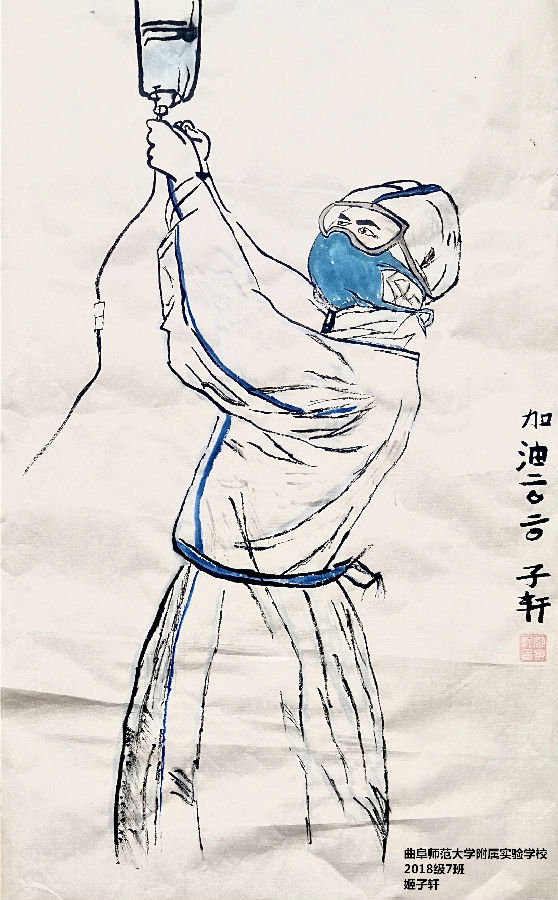 加油二〇二〇 子轩
曲阜师范大学附属实验学校
2018级7班
姬子轩